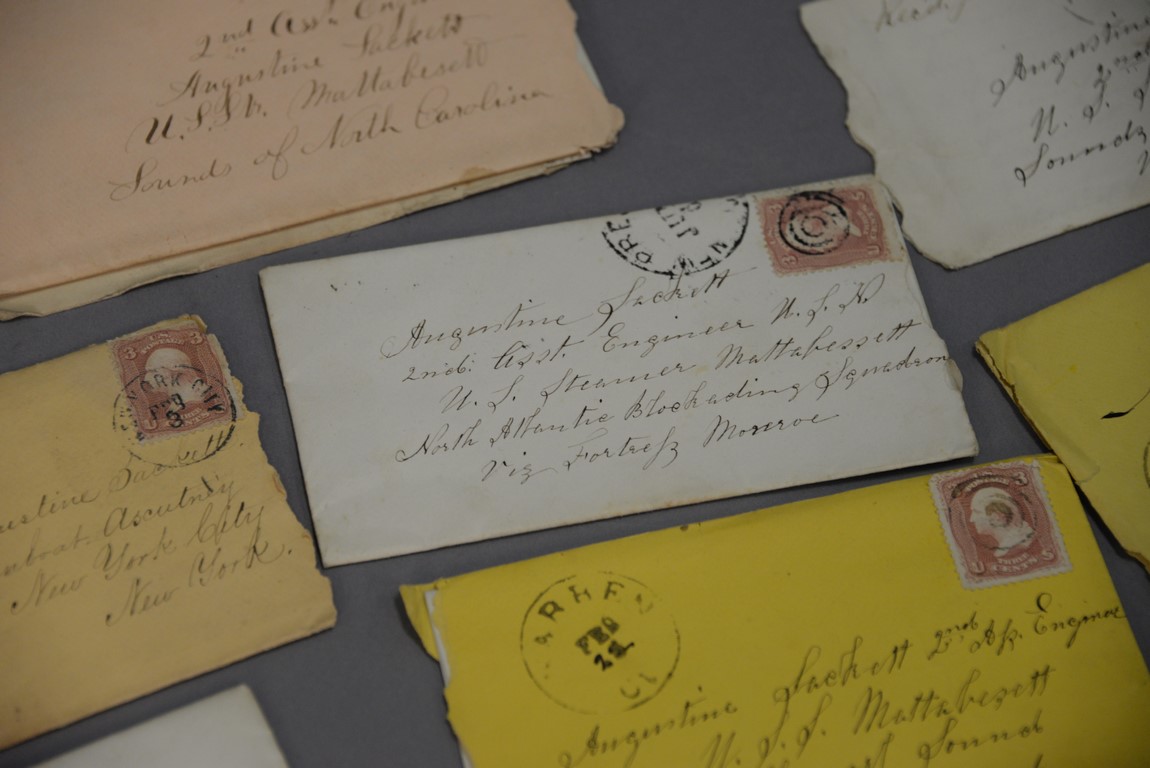 2nd Asst Engr
Augustine Sackett
U.S.Str. Mattabesett
Sounds of North Carolina
Augustine
2nd
U. S. S
Sounds
NEW
3 3
U
Augustine Sackett
2nd: Asst. Engineer U.S.N.
U. S. Steamer Mattabessett
North Atlantic Blockading Squadron
Via Fortress Monroe
3 U.S. 3
POSTAGE
YORK CITY
FEB
3
Sackett.
Ascutney
New York City
New York.
3
U THREE S
CENTS
WARREN
FEB
CT
Augustine Sackett 2nd As. Engineer
U. S. S. Mattabesett
Sound